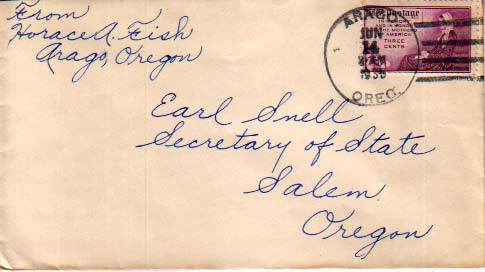 From
Horace A. Fish
Arago, Oregon
ARAGO
JUN
14
OREG.
Postage
AND IN HONOR
THE MOTHERS
AMERICA
THREE
CENTS
Earl Snell
Secretary of State
Salem
Oregon